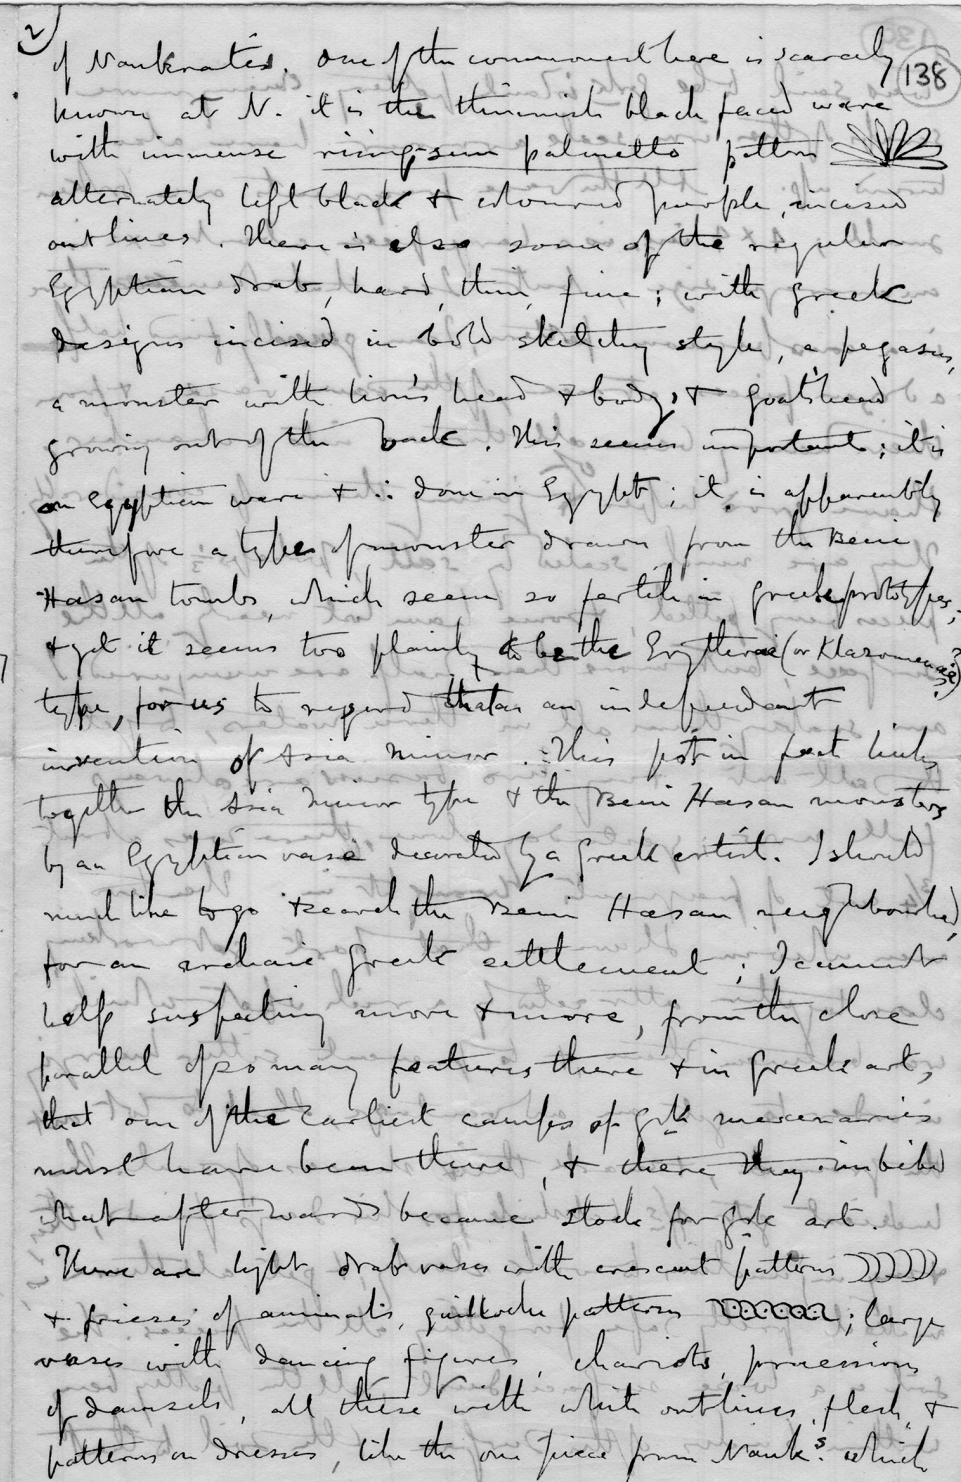 2)
138
of Naukratis. One of the commonest here is scarcely
known at N. it is the thinnish black faced ware
with immense rising-sun palmetto pattern
alternately left black & coloured purple, incised
outlines. There is also some of the regular
Egyptian drab, hard, thin, fine; with Greek
designs incised in bold sketchy style, a pegasus,
a monster with lion's head & body, & goatshead
growing out of the back. This seems important; it is
on Egyptian ware & ∴ done in Egypt; it is apparently
therefore a type of monster drawn from the Beni
Hasan tombs, which seem so fertile in Greek prototypes;
& yet it seems too plainly to be the Erythrai (or Klazomenai?)
type, for us to regard that as an independant
invention of Asia Minor. ∴ This pot in fact links
together the Asia Minor type & the Beni Hasan monsters
by an Egyptian vase decorated by a Greek artist. I should
much like to go & search the Beni Hasan neighbourhood,
for an archaic Greek settlement; I cannot
help suspecting more & more, from the close
parallel of so many features there & in Greek art,
that one of the earliest camps of Grk mercenaries
must have been there, & there they imbibed
what afterwards became stock for Grk art.
There are light drab vases with crescent patterns
& friezes of animals, guilloche patterns ; large
vases with dancing figures, chariots, processions
of damsels, all these with white outlines, flesh, &
patterns on dresses, like the one piece from Nauk.s which